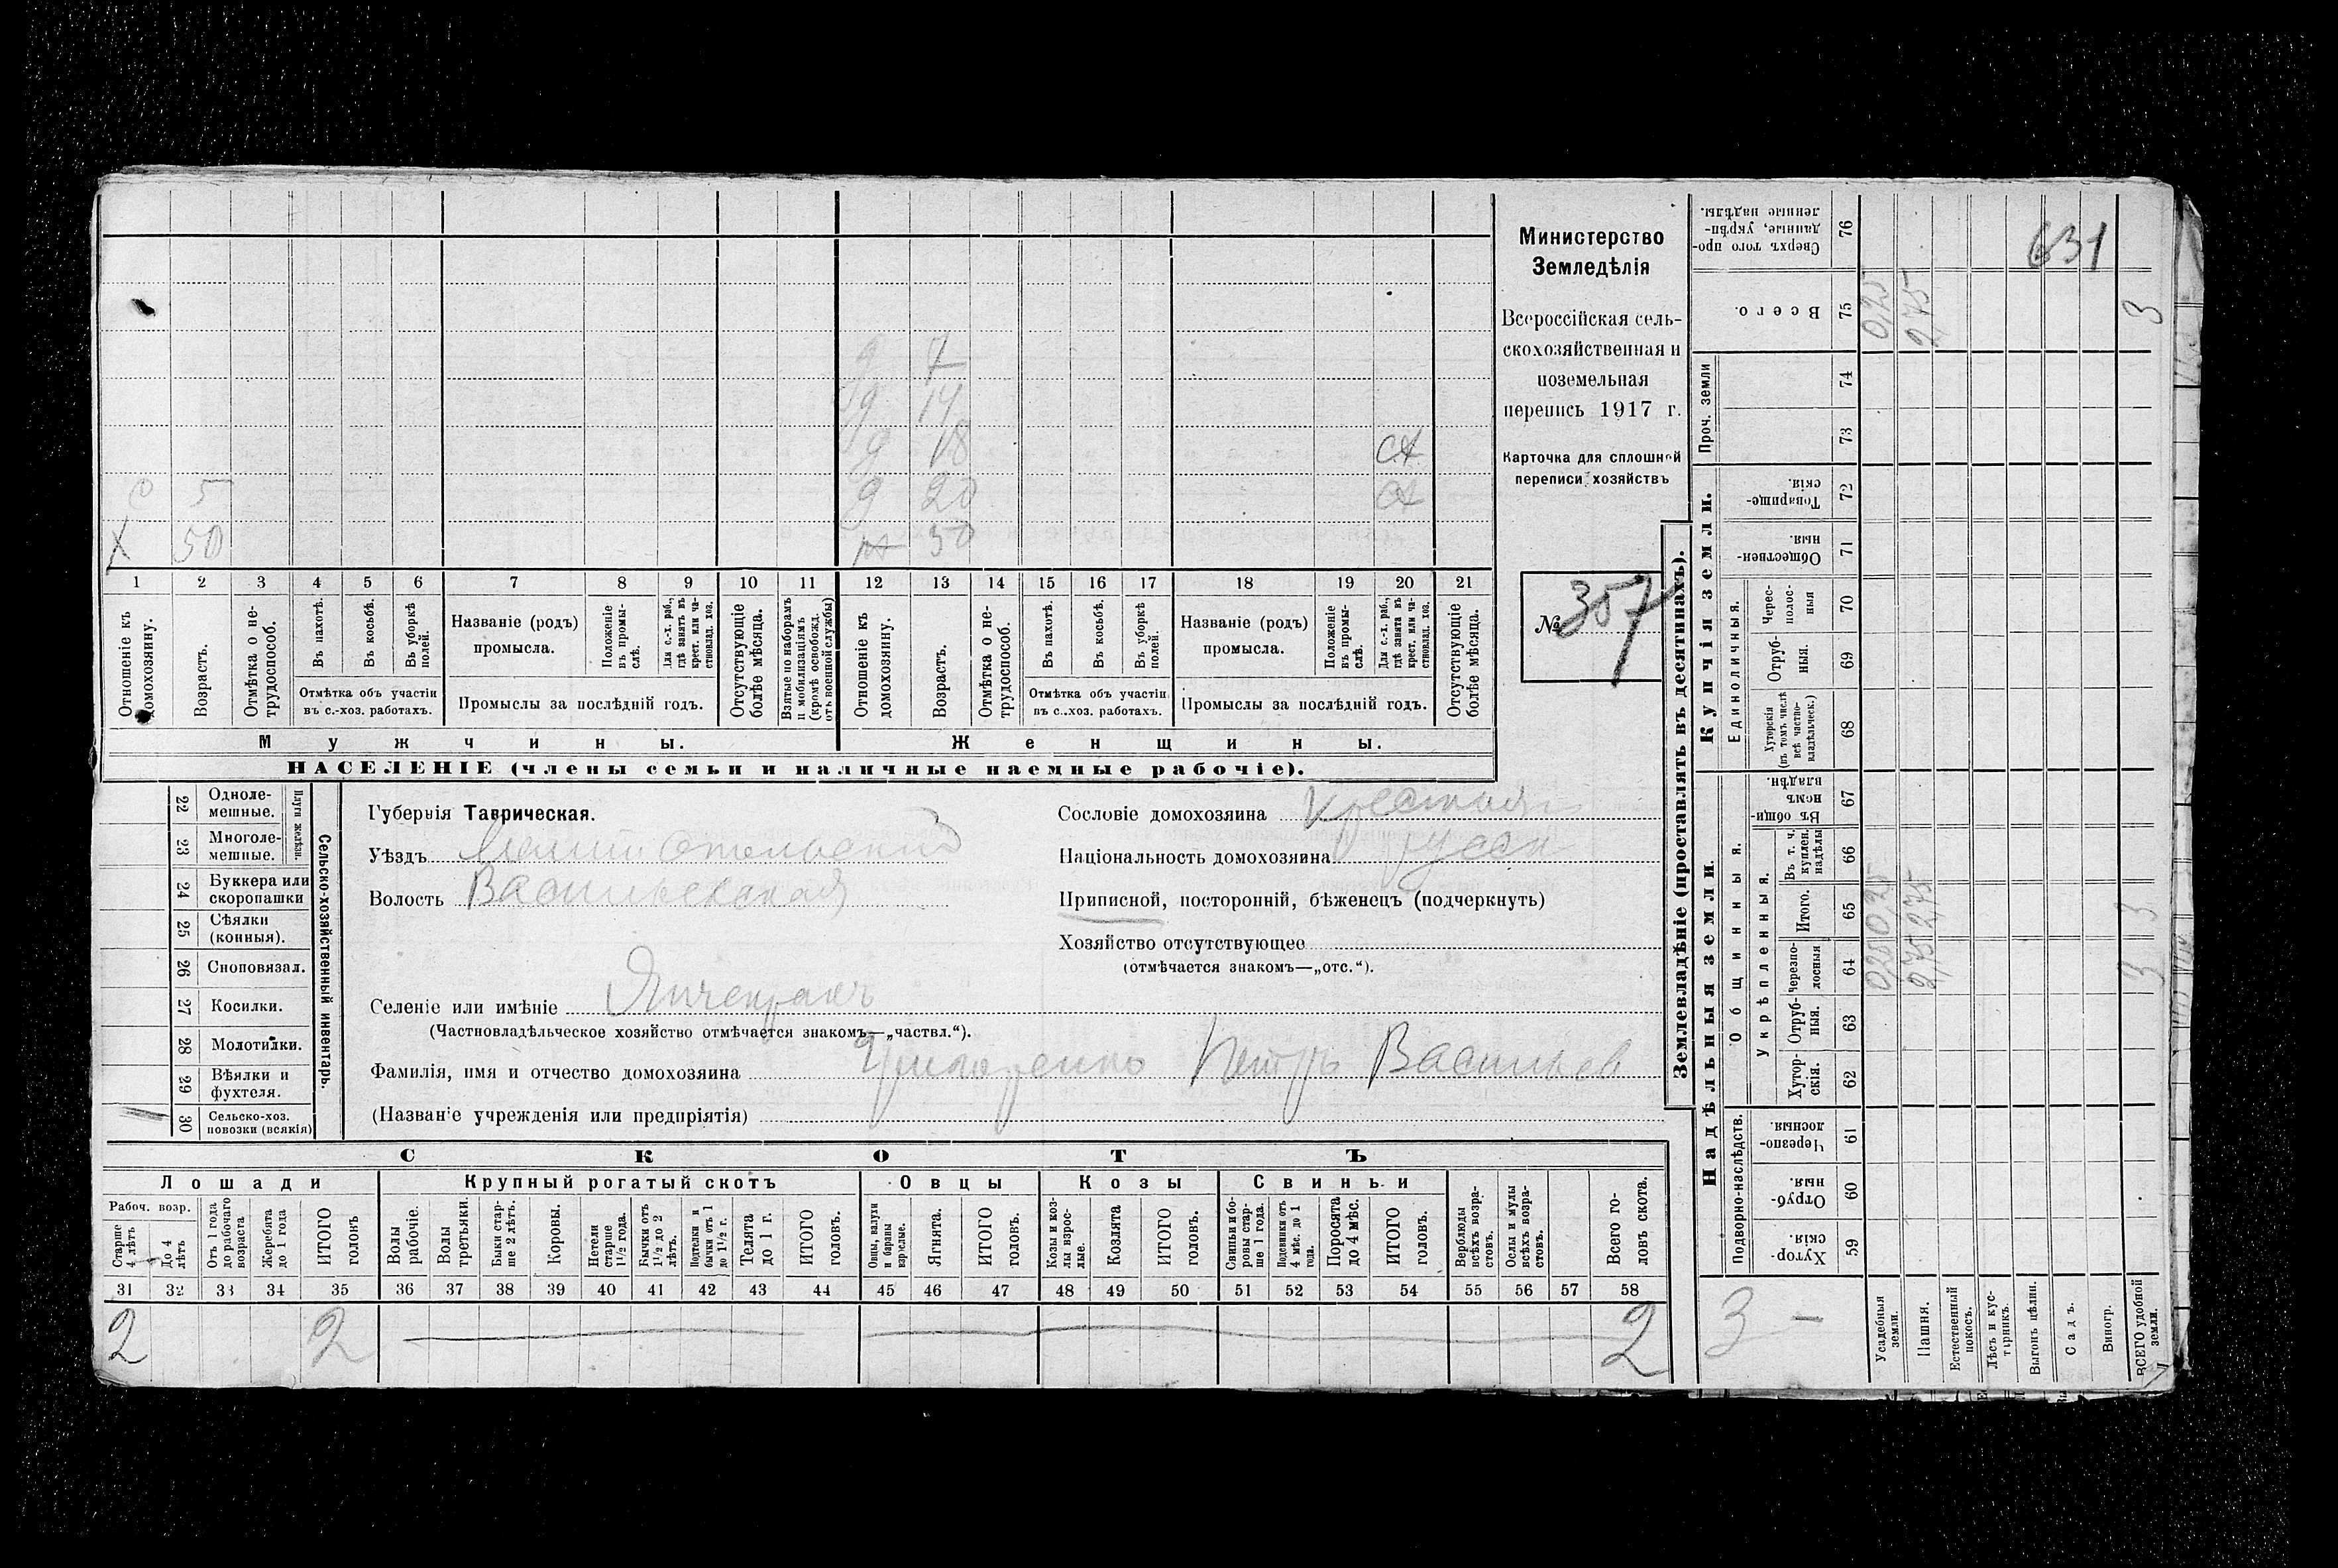 631
Министерство
Земледѣлія
Всероссійская сель-
скохозяйственная и
поземельная
перепись 1917 г.
Карточка для сплошной
переписи хозяйствъ
№ 357
д 7
д 14
д 18 сх
с 5 д 20 сх
Х 50 50
1 2 3 4 5 6 7 8 9 10 11 12 13 14 15 16 17 18 19 20 21
Отношеніе къ домохозяину.
Возрастъ.
Отмѣтка о не-трудоспособ.
Въ пахотѣ.
Въ косьбѣ.
Въ уборкѣ полей.
Отмѣтка объ участіи въ с.-хоз. работахъ.
Названіе (родъ) промысла.
Положеніе въ промы-слѣ.
Для с.-х. раб., гдѣ занятъ въ крест. или ча-стновлад. хоз.
Промыслы за послѣдній годъ.
Отсутствующіе болѣе мѣсяца.
Взятые по наборамъ и мобилизаціямъ (кромѣ освобожд. отъ военной службы)
Отношеніе къ домохозяину.
Возрастъ.
Отмѣтка о не-трудоспособ.
Въ пахотѣ.
Въ косьбѣ.
Въ уборкѣ полей.
Отмѣтка объ участіи въ с.-хоз. работахъ.
Названіе (родъ) промысла.
Положеніе въ промы-слѣ.
Для с.-х. раб., гдѣ занята въ крест. или ча-стновлад. хоз.
Промыслы за послѣдній годъ.
Отсутствующіе болѣе мѣсяца.
Мужчины. Женщины.
НАСЕЛЕНІЕ (члены семьи и наличные наемные рабочіе).
Сельско-хозяйственный инвентарь.
Плуги желѣзн.
22 Одноле-мешные.
23 Многоле-мешные.
24 Буккера или скоропашки
25 Сѣялки (конныя).
26 Сноповязал.
27 Косилки.
28 Молотилки.
29 Вѣялки и фухтеля.
30 Сельско-хоз. повозки (всякія)
Губернія Таврическая.
Уѣздъ Мелитопольский
Волость Васильевская
Селеніе или имѣніе Янчекракъ
(Частновладѣльческое хозяйство отмѣчается знакомъ—„частвл.“).
Фамилія, имя и отчество домохозяина Петръ Васильев
(Названіе учрежденія или предпріятія)
Сословіе домохозяина крестьян
Національность домохозяина русск
Приписной, посторонній, бѣженецъ (подчеркнуть)
Хозяйство отсутствующее
(отмѣчается знакомъ—„отс.“).
СКОТЪ
Лошади Крупный рогатый скотъ Овцы Козы Свиньи
Рабоч. возр.
Старше 4 лѣтъ
До 4 лѣтъ
Отъ 1 года до рабочаго возраста
Жеребята до 1 года
ИТОГО головъ
Волы рабочіе.
Волы третьяки.
Быки стар-ше 2 лѣтъ.
Коровы.
Нетели старше 1½ года.
Бычки отъ 1½ до 2 лѣтъ.
Подтелки и бычки отъ 1 до 1½ г.
Телята до 1 г.
ИТОГО головъ.
Овцы, валухи и бараны взрослые.
Ягнята.
ИТОГО головъ.
Козы и коз-лы взрос-лые.
Козлята
ИТОГО головъ.
Свиньи и бо-ровы стар-ше 1 года.
Подсвинки отъ 4 мѣс. до 1 года.
Поросята до 4 мѣс.
ИТОГО головъ.
Верблюды всѣхъ возра-стовъ.
Ослы и мулы всѣхъ возра-стовъ.
Всего го-ловъ скота.
31 32 33 34 35 36 37 38 39 40 41 42 43 44 45 46 47 48 49 50 51 52 53 54 55 56 57 58
2 2 2
Землевладѣніе (проставлять въ десятинахъ).
Надѣльныя земли. Купчія земли. Проч. земли
Подворно-наслѣдств.
Общинныя.
Укрѣпленныя.
Единоличныя.
Хутор-скія. 59
Отруб-ныя. 60
Черезпо-лосныя. 61
Хутор-скія. 62
Отруб-ныя. 63
Черезпо-лосныя 64
Итого. 65
Въ т. ч. куплен. надѣлы 66
Въ общин-номъ владѣн. 67
Хуторскія (въ томъ числѣ всѣ частно-владѣльческ.) 68
Отруб-ныя. 69
Черес-полос-ныя 70
Обществен-ныя. 71
Товарище-скія. 72
73
74
Всего. 75
Сверхъ того про-данные, укрѣп-ленные надѣлы. 76
3 —
Усадебныя земли. 0,25 0,25 0,25
Пашня. 2,75 2,75 2,75
Естественный покосъ.
Лѣсъ и кус-тарникъ.
Выгонъ цѣлин.
Садъ.
Виногр.
ВСЕГО удобной земли. 3 3 3